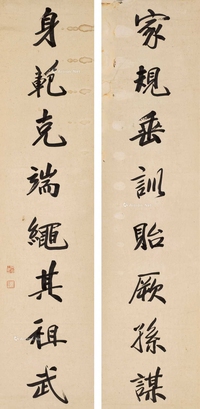 家規垂訓貽厥孫謀
身範克端繩其祖武